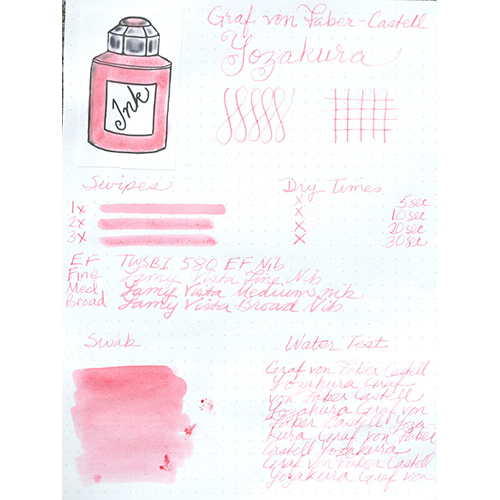 Graf von Faber-Castell
Yozakura
Ink
Swipes
1x
2x
3x
Dry Times
x 5 sec
x 10 sec
x 20 sec
x 30 sec
EF TWSBI 580 EF Nib
Fine Lamy Vista Fine Nib
Med Lamy Vista Medium nib
Broad Lamy Vista Broad Nib
Swab
Water Test
Graf von Faber Castell
Yozakura Graf
von Faber Castell
Yozakura Graf von
Faber Castell Yoza
kura Graf von Faber
Castell Yozakura
Graf von Faber Castell
Yozakura Graf von